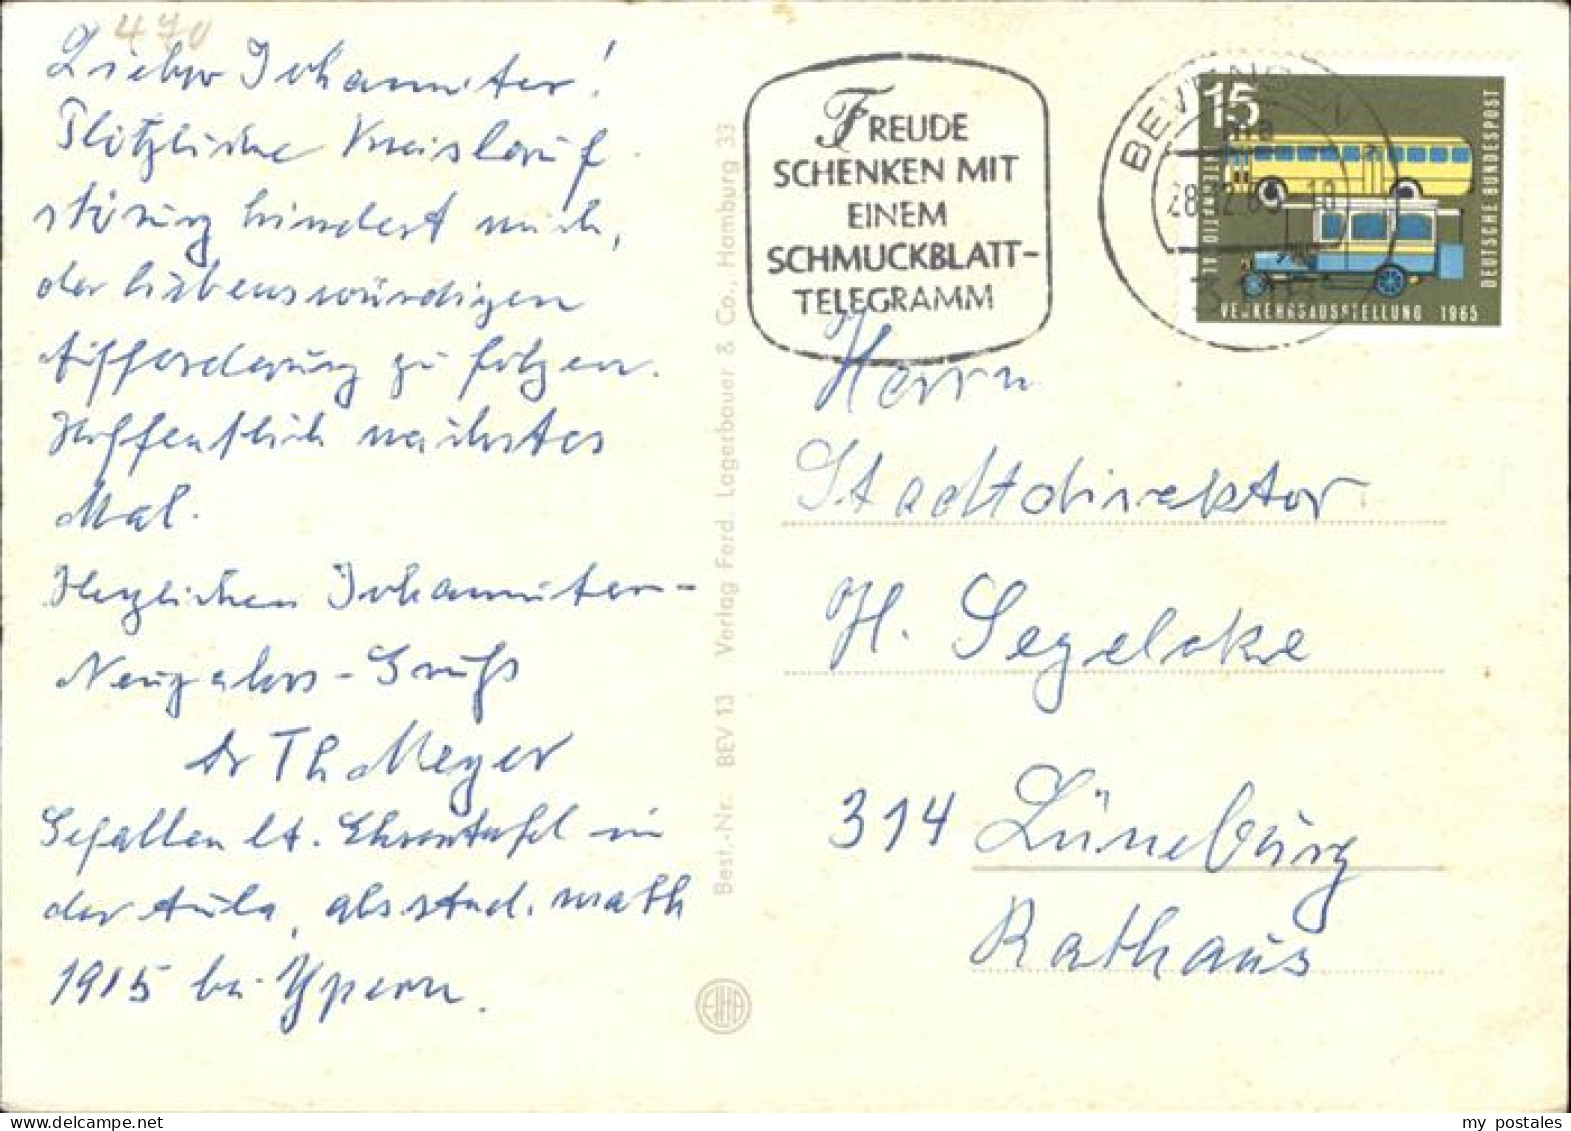 470
Lieber Johanniter!
Plötzliche Kreislauf
störung hindert mich,
der liebenswürdigen
Aufforderung zu folgen.
Hoffentlich nächstes
Mal.
Herzlichen Johanniter-
Neujahrs-Gruß
Dr Th Meyer
Gefallen lt. Ehrentafel in
der Aula, als stud. math
1915 bei Ypern.
Best.-Nr. BEV 13 Verlag Ferd. Lagerbauer & Co., Hamburg 33
FREUDE
SCHENKEN MIT
EINEM
SCHMUCKBLATT-
TELEGRAMM
BEVENSEN
15
DEUTSCHE BUNDESPOST
VERKEHRSAUSSTELLUNG 1965
Herrn
Stadtdirektor
H. Segelcke
314 Lüneburg
Rathaus
my postales